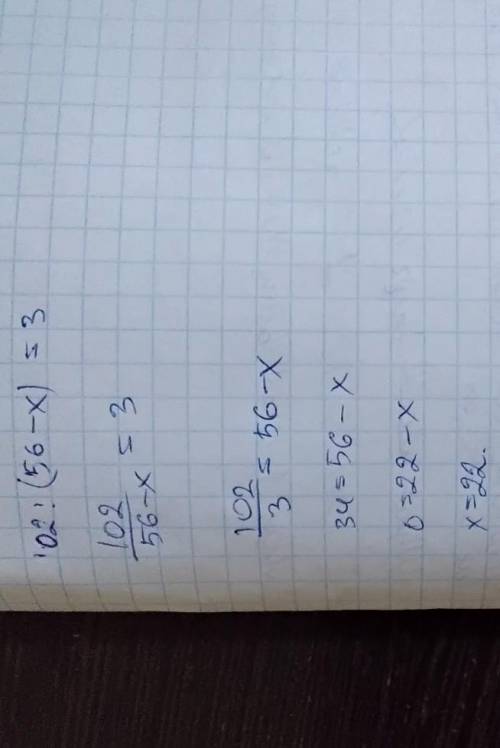 102:(56-x) = 3
102/(56-x) = 3
102/3 = 56-x
34=56-x
0=22-x
x=22.